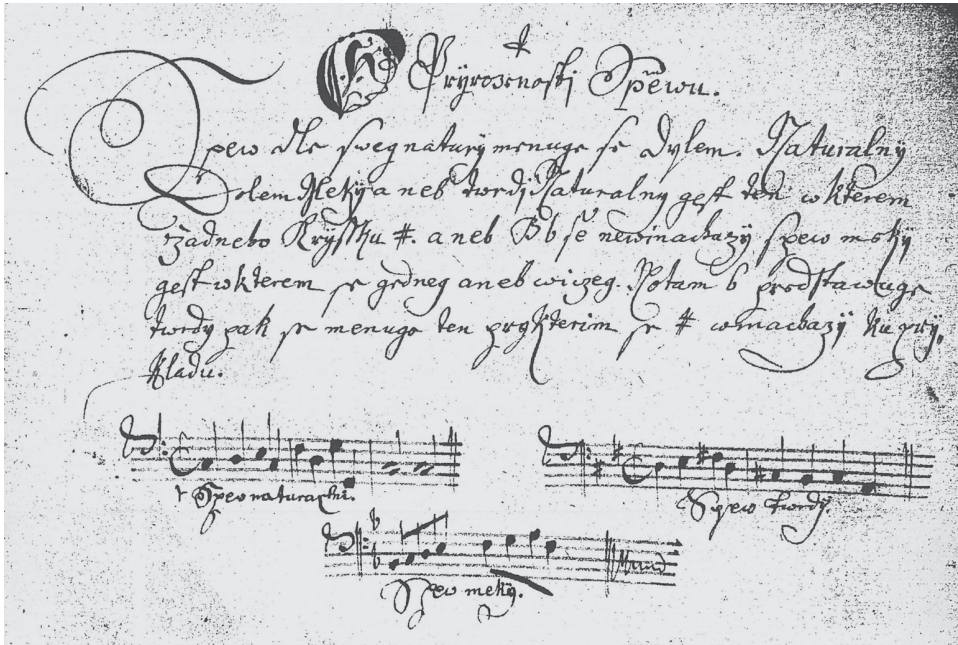 O Pryrozenosti Spěwu.
Spew dle sweg natury menuge se dylem. Naturalny
dolem Meky a neb twrdj Naturalny gest ten w kterem
žadneho Kryſſku #. aneb B b se newinachazy spew meky
gest w kterem se gedneg aneb wizeg. Notam b predstawuge
twrdy pak se menuge ten pry kterim se # winachazy ku pry,
kladu.
Spew naturaclni.
Spew twrdy.
Spew meky.